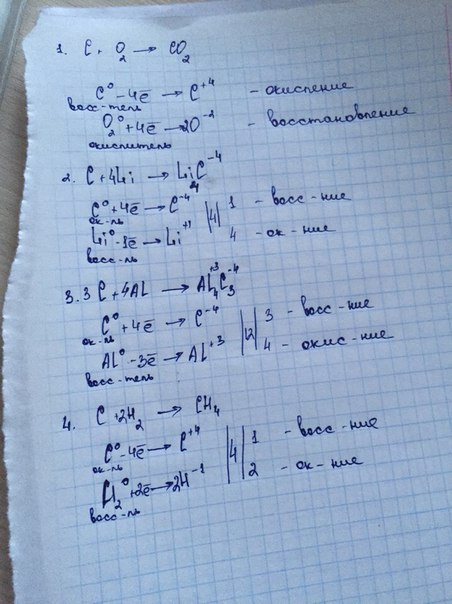 1. C + O₂ → CO₂
C⁰ - 4ē → C⁺⁴ - окисление
восс-тель
O₂⁰ + 4ē → 2O⁻² - восстановление
окислитель
2. C + 4Li → Li₄C⁻⁴
C⁰ + 4ē → C⁻⁴ |4| 1 - восс-ние
ок-ль
Li⁰ - 1ē → Li⁺¹ 4 - ок-ние
восс-ль
3. 3C + 4Al → Al₄⁺³C₃⁻⁴
C⁰ + 4ē → C⁻⁴ |12| 3 - восс-ние
ок-ль
Al⁰ - 3ē → Al⁺³ 4 - окис-ние
восс-тель
4. C + 2H₂ → CH₄
C⁰ - 4ē → C⁺⁴ |4| 1 - восс-ние
ок-ль
H₂⁰ + 2ē → 2H⁻¹ 2 - ок-ние
восс-ль